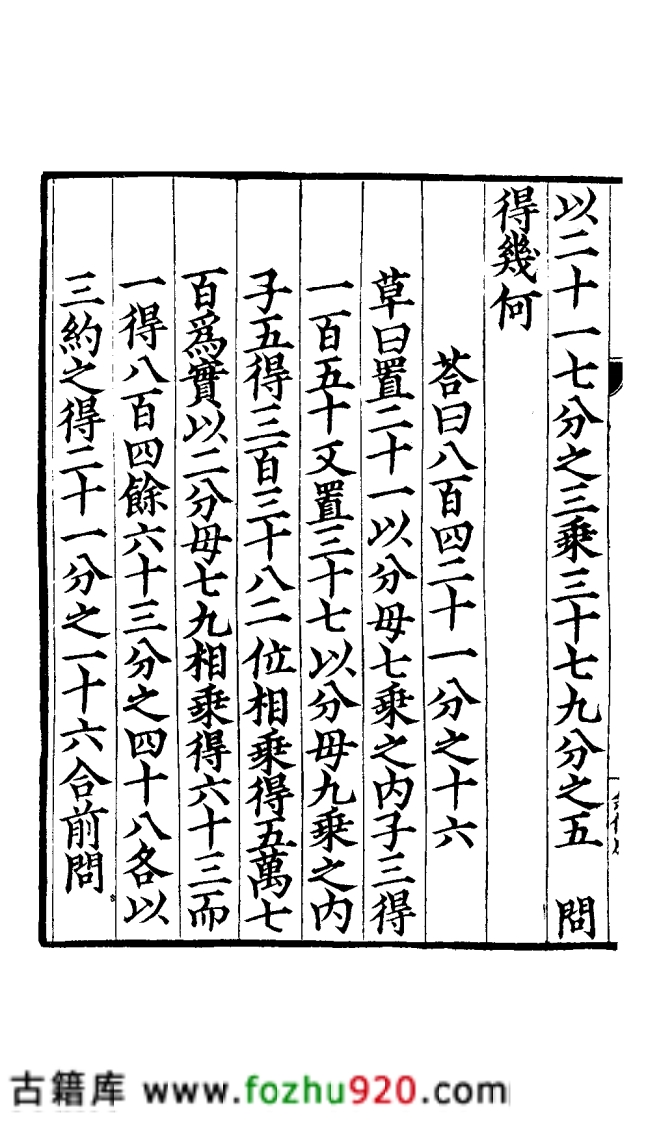 以二十一七分之三乗三十七九分之五　問
得幾何
荅曰八百四二十一分之十六
草曰置二十一以分母七乗之内子三得
一百五十又置三十七以分母九乗之内
子五得三百三十八二位相乗得五萬七
百爲實以二分母七九相乗得六十三而
一得八百四餘六十三分之四十八各以
三約之得二十一分之一十六合前問
古籍库 www.fozhu920.com